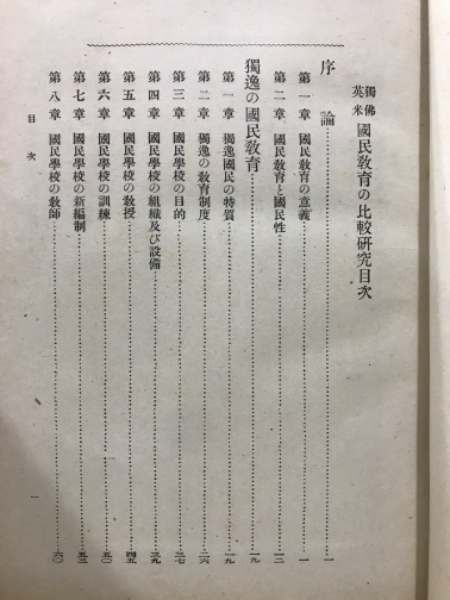 獨佛英米 國民教育の比較研究目次
序論……一
第一章 國民教育の意義……一
第二章 國民教育と國民性……一二
獨逸の國民教育……一九
第一章 獨逸國民の特質……一九
第二章 獨逸の教育制度……二六
第三章 國民學校の目的……三七
第四章 國民學校の組織及び設備……三九
第五章 國民學校の教授……四五
第六章 國民學校の訓練……五〇
第七章 國民學校の新編制……五三
第八章 國民學校の教師……六〇
目次
一